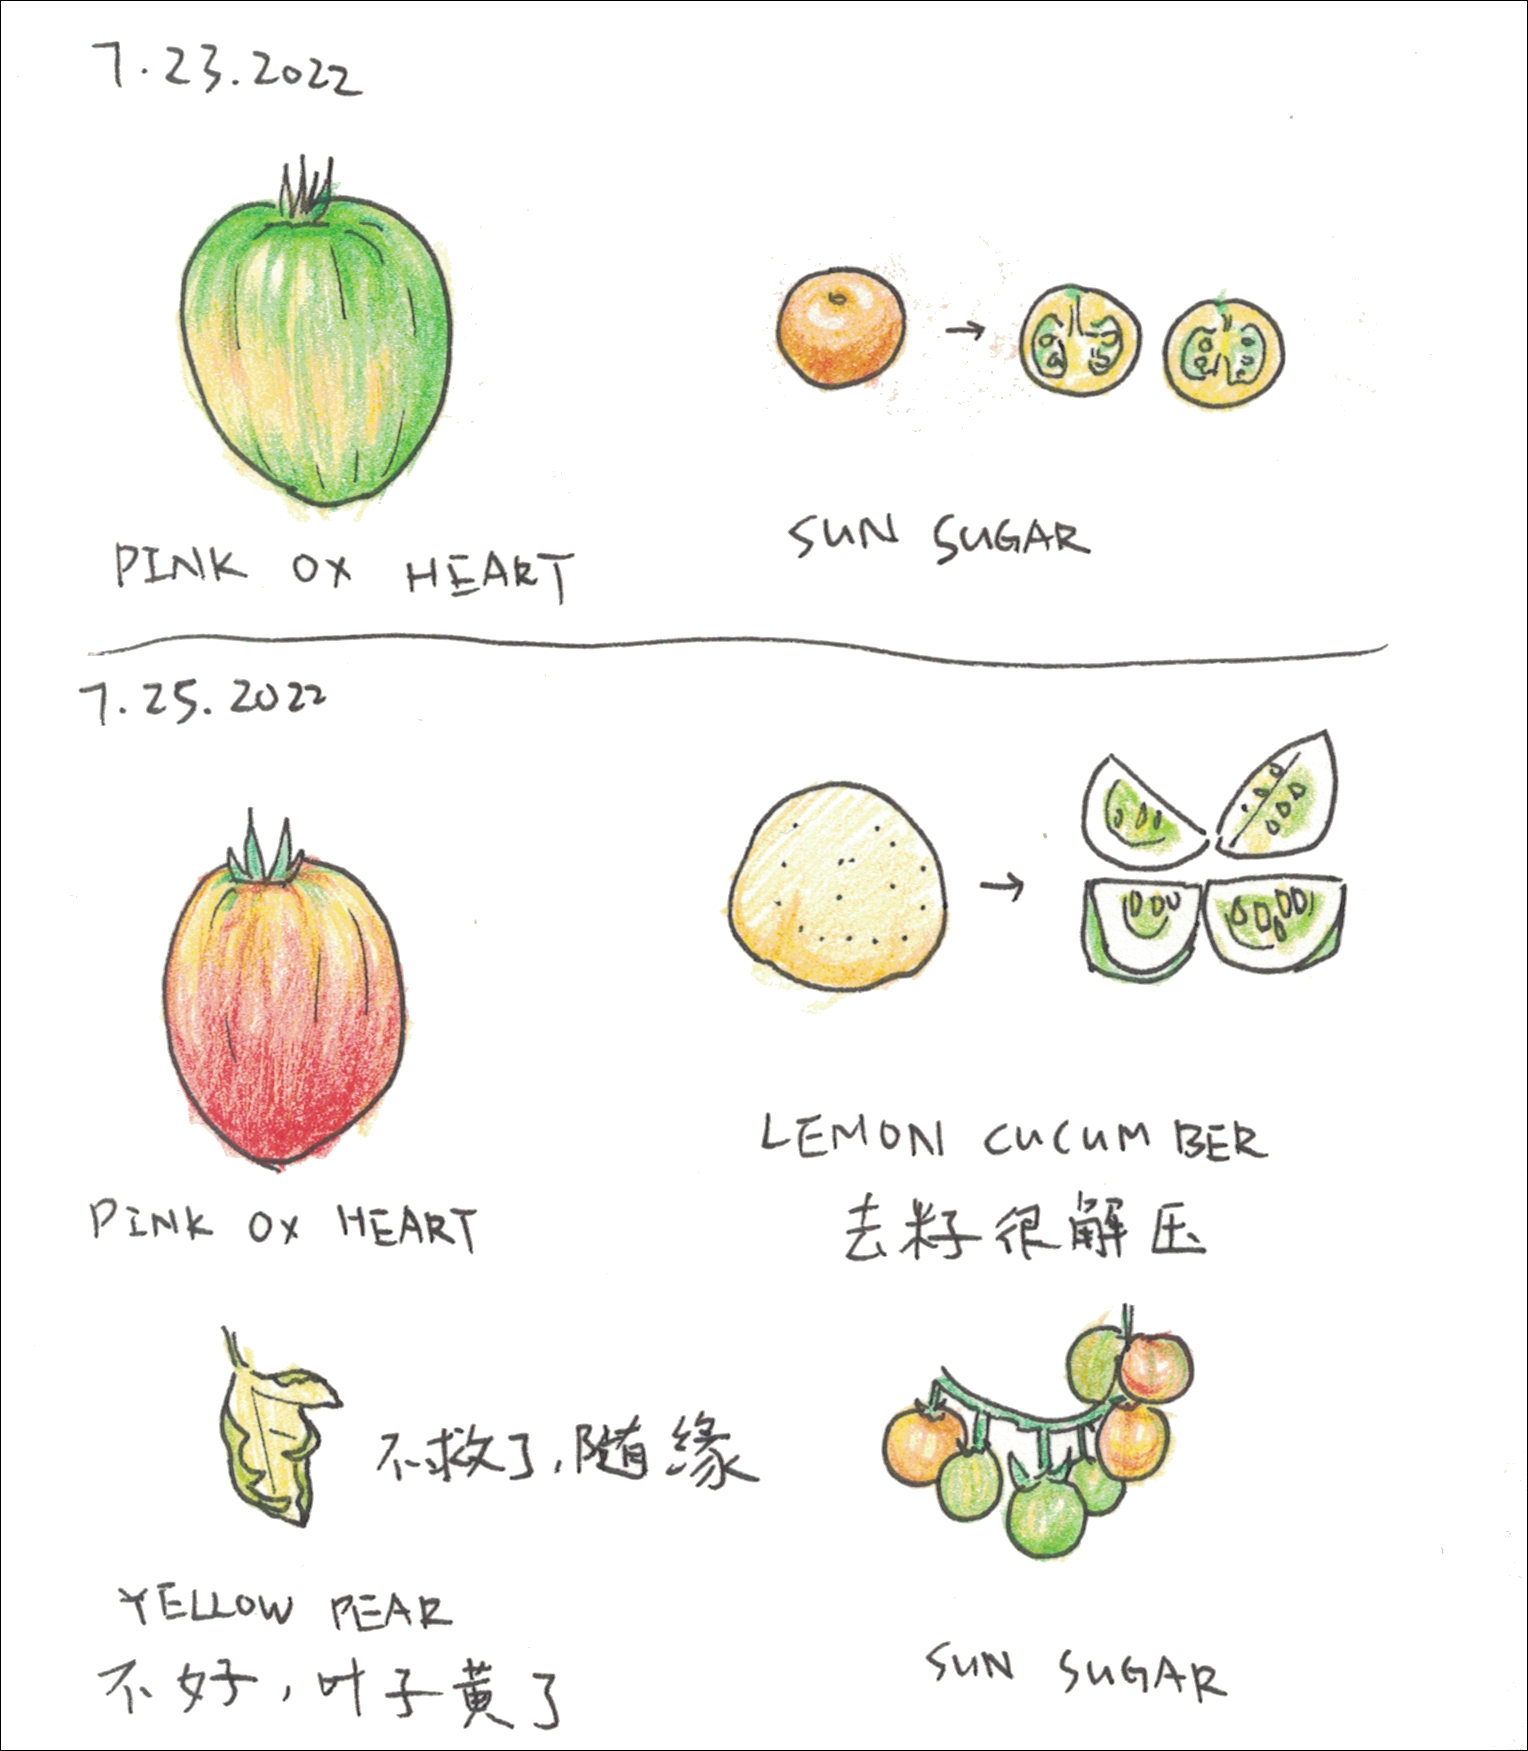 7.23.2022
PINK OX HEART
SUN SUGAR
7.25.2022
PINK OX HEART
LEMON CUCUMBER
去籽很解压
不救了,随缘
YELLOW PEAR
不好,叶子黄了
SUN SUGAR